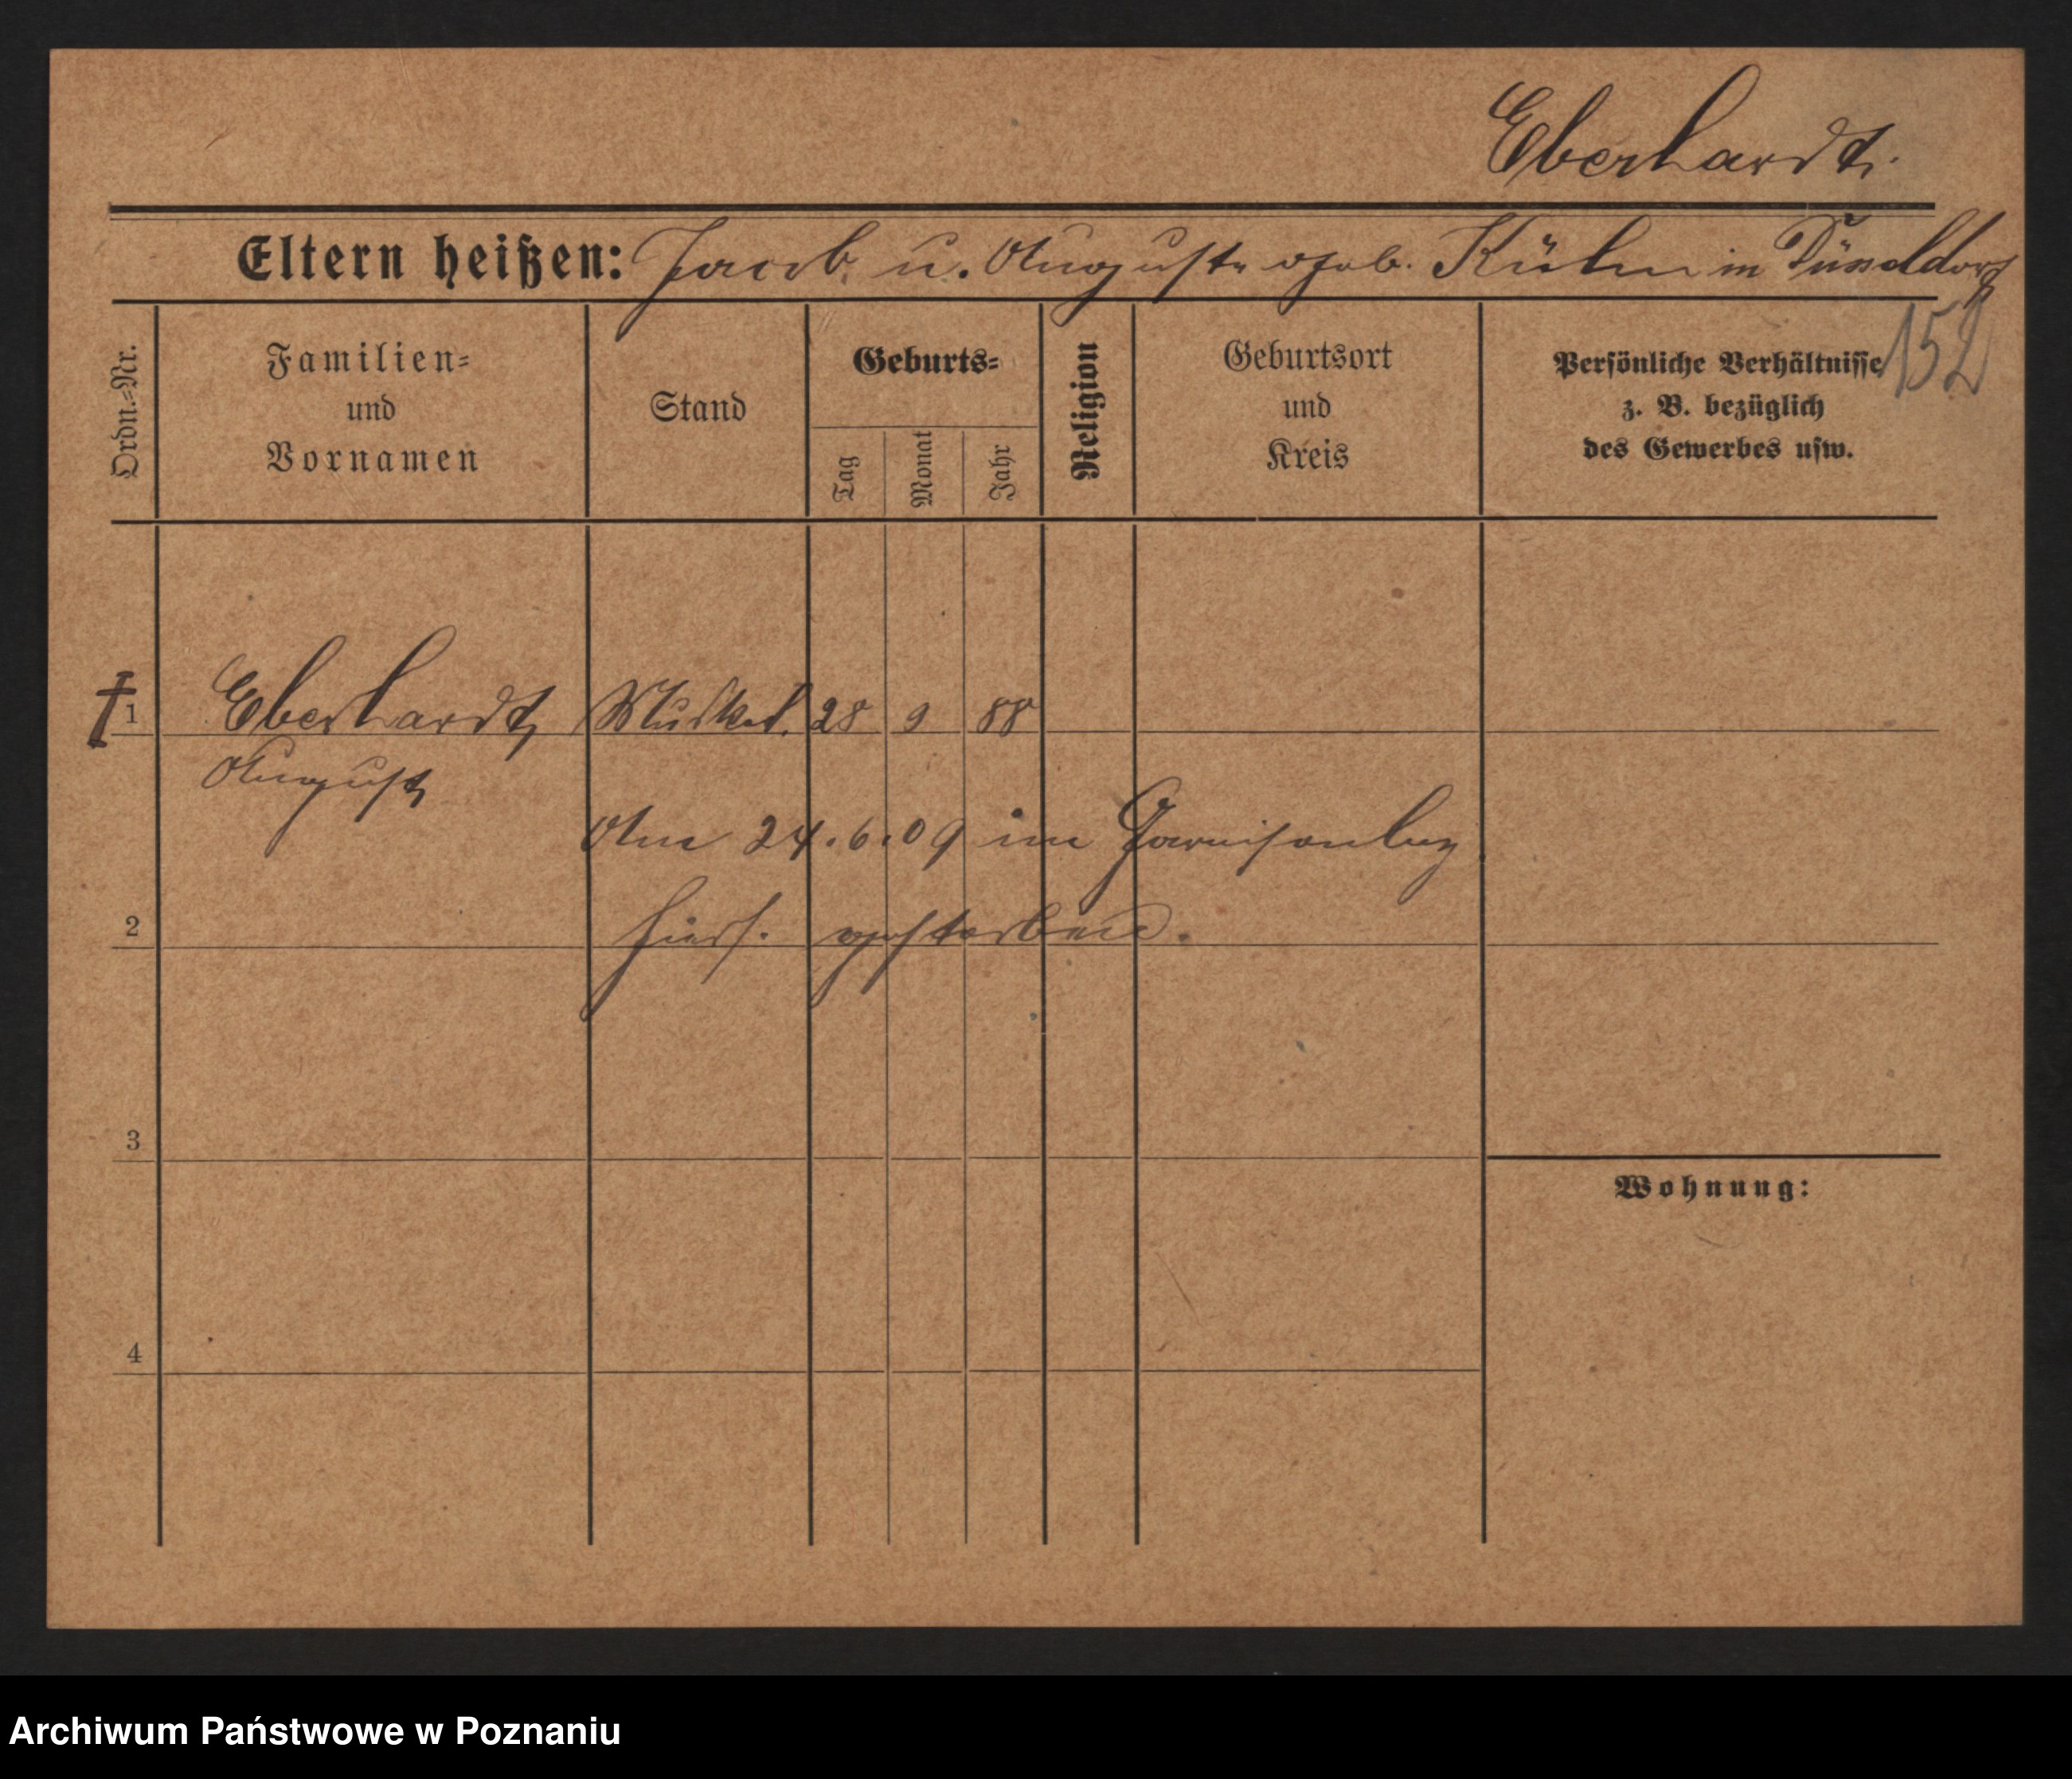 Eberhardt.
Eltern heißen: Jacob u. Auguste geb. Kühn in Düsseldorf
152
Ordn.-Nr.
Familien-
und
Vornamen
Stand
Geburts-
Tag
Monat
Jahr
Religion
Geburtsort
und
Kreis
Persönliche Verhältnisse
z. B. bezüglich
des Gewerbes usw.
† 1 Eberhardt Musket. 28 9 88
August
Am 24.6.09 im Garnisonlaz
2 hiers. gestorben.
3
Wohnung:
4
Archiwum Państwowe w Poznaniu